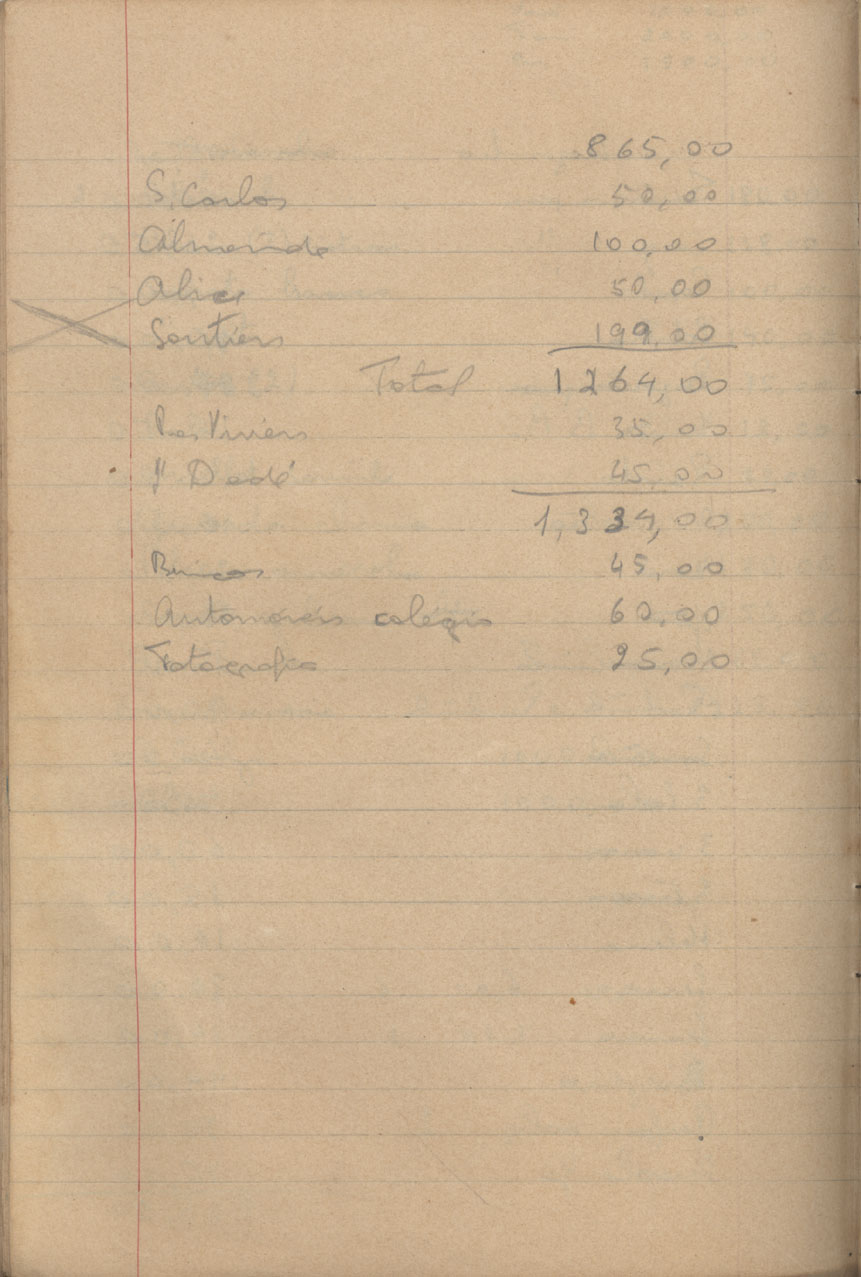 865,00
S. Carlos 50,00
Almerinda 100,00
Alice 50,00
199,00
Total 1264,00
35,00
" Dedé 45,00
1,334,00
Brincos 45,00
Automóveis colégio 60,00
Fotografia 25,00